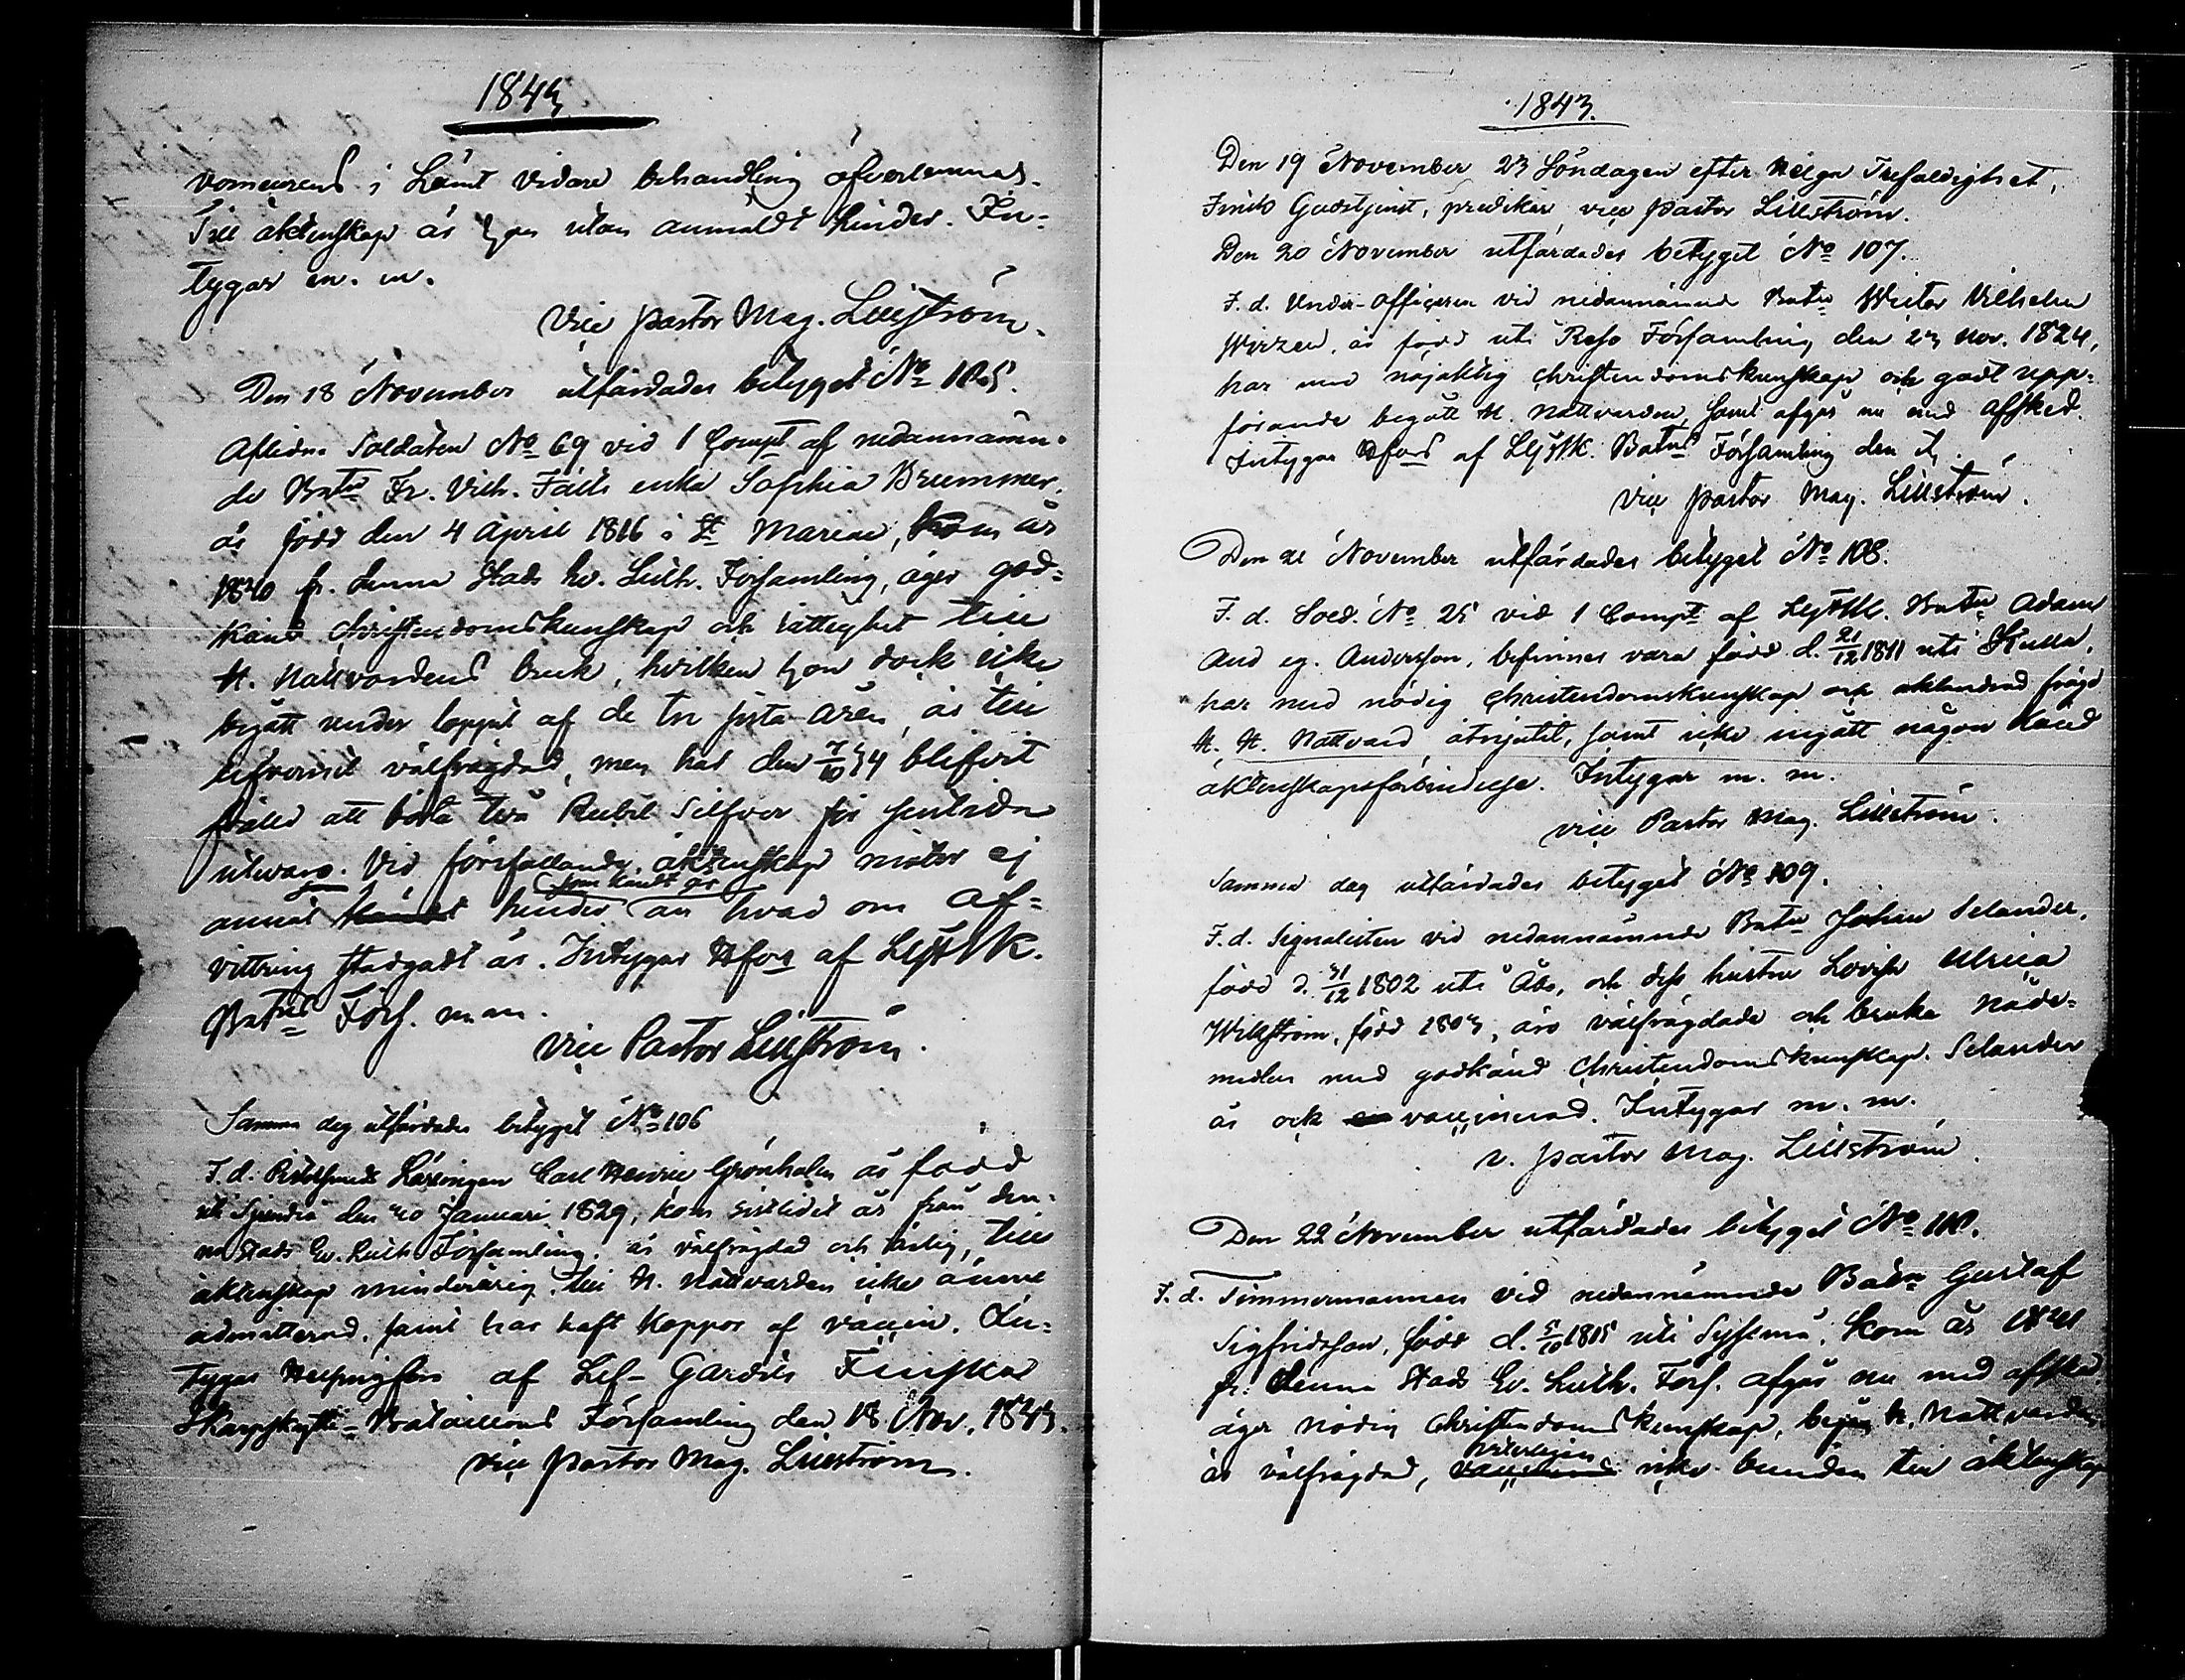 1843
i samt vidare behandling öfverlemnas.
Till äktenskap är hon utan anmäldt hinder. In-
tygar m. m.
Vice pastor Mag. Lillström.
Den 18 November utfärdades betyget No 105.
Aflidne Soldaten No 69 vid 1 Compt af nedannämn-
de Batn Fr. Vilh. Fälts enka Sophia Brummer,
är född den 4 April 1816 i St Marien, kom år
1840 fr. denna Stads Ev. Luth. Församling, äger god-
känd Christendomskunskap och rättighet till
H. Nattvardens bruk, hvilken hon dock icke
begått under loppet af de tre sista åren, är till
lefvernet välfrägdad, men har den 7/10 34 blifvit
fälld att böta två Rubel Silfver för
utevaro. Vid förefallande äktenskap möter ej
annat hinder som kändt är än hvad om af-
vittring stadgadt är. Intygar Hfors af LgFSk.
Batns Förs. m. m.
Vice Pastor Lillström.
Samma dag utfärdades betyget No 106
F. d. Lärlingen Carl Henric Grönholm är född
uti Sjundeå den 20 Januari 1829, kom sistlidet år från den-
na Stads Ev. Luth Församling, är välfrägdad och ärlig, till
äktenskap minderårig, till H. Nattvarden icke ännu
admitterad, samt har haft koppor af vaccin. In-
tygar Helsingfors af Lif-Gardets Finska
Skarpskytte-Bataillons Församling den 18 Nov. 1843.
Vice pastor Mag. Lillström.
1843.
Den 19 November 23 Söndagen efter Helga Trefaldighet,
Finsk Gudstjenst, predikar vice Pastor Lillström.
Den 20 November utfärdades betyget No 107.
F. d. Under-officeren vid nedannämnde Batn Victor Vilhelm
Wirzen, är född uti Reso Församling den 23 nov. 1824,
har med nöjaktig christendomskunskap och godt upp-
förande begått H. Nattvarden, samt afgår nu med afsked.
Intygar Hfors af LgFSk. Batns Församling den
Vice pastor Mag. Lillström.
Den 21 November utfärdades betyget No 108.
F. d. Sold. No 25 vid 1 Compt af LgFSk. Batn Adam
And eg. Andersson, befinnes vara född d. 21/12 1811 uti Skulla,
har med nödig christendomskunskap och oklandrad frägd
H. H. Nattvard åtnjutit, samt icke ingått någon känd
äktenskapsförbindelse. Intygar m. m.
vice Pastor Mag. Lillström.
Samma dag utfärdades betyget No 109.
F. d. Signalisten vid nedannämnde Batn Johan Selander,
född d. 31/12 1802 uti Åbo, och dess hustru Lovisa Ulrica
Willström, född 1803, äro välfrägdade och bruka nåde-
medlen med godkänd Christendomskunskap. Selander
är ock vaccinerad. Intygar m. m.
v. pastor Mag. Lillström.
Den 22 November utfärdades betyget No 110.
F. d. Timmermannen vid nedannämnde Batn Gustaf
Sigfridsson, född d. 5/10 1815 uti Syssmä, kom år 1841
fr. denna Stads Ev. Luth. Förs. afgår nu med afsked
äger nödig Christendomskunskap, begår H. Nattvarden,
är välfrägdad, icke bunden till äktenskap